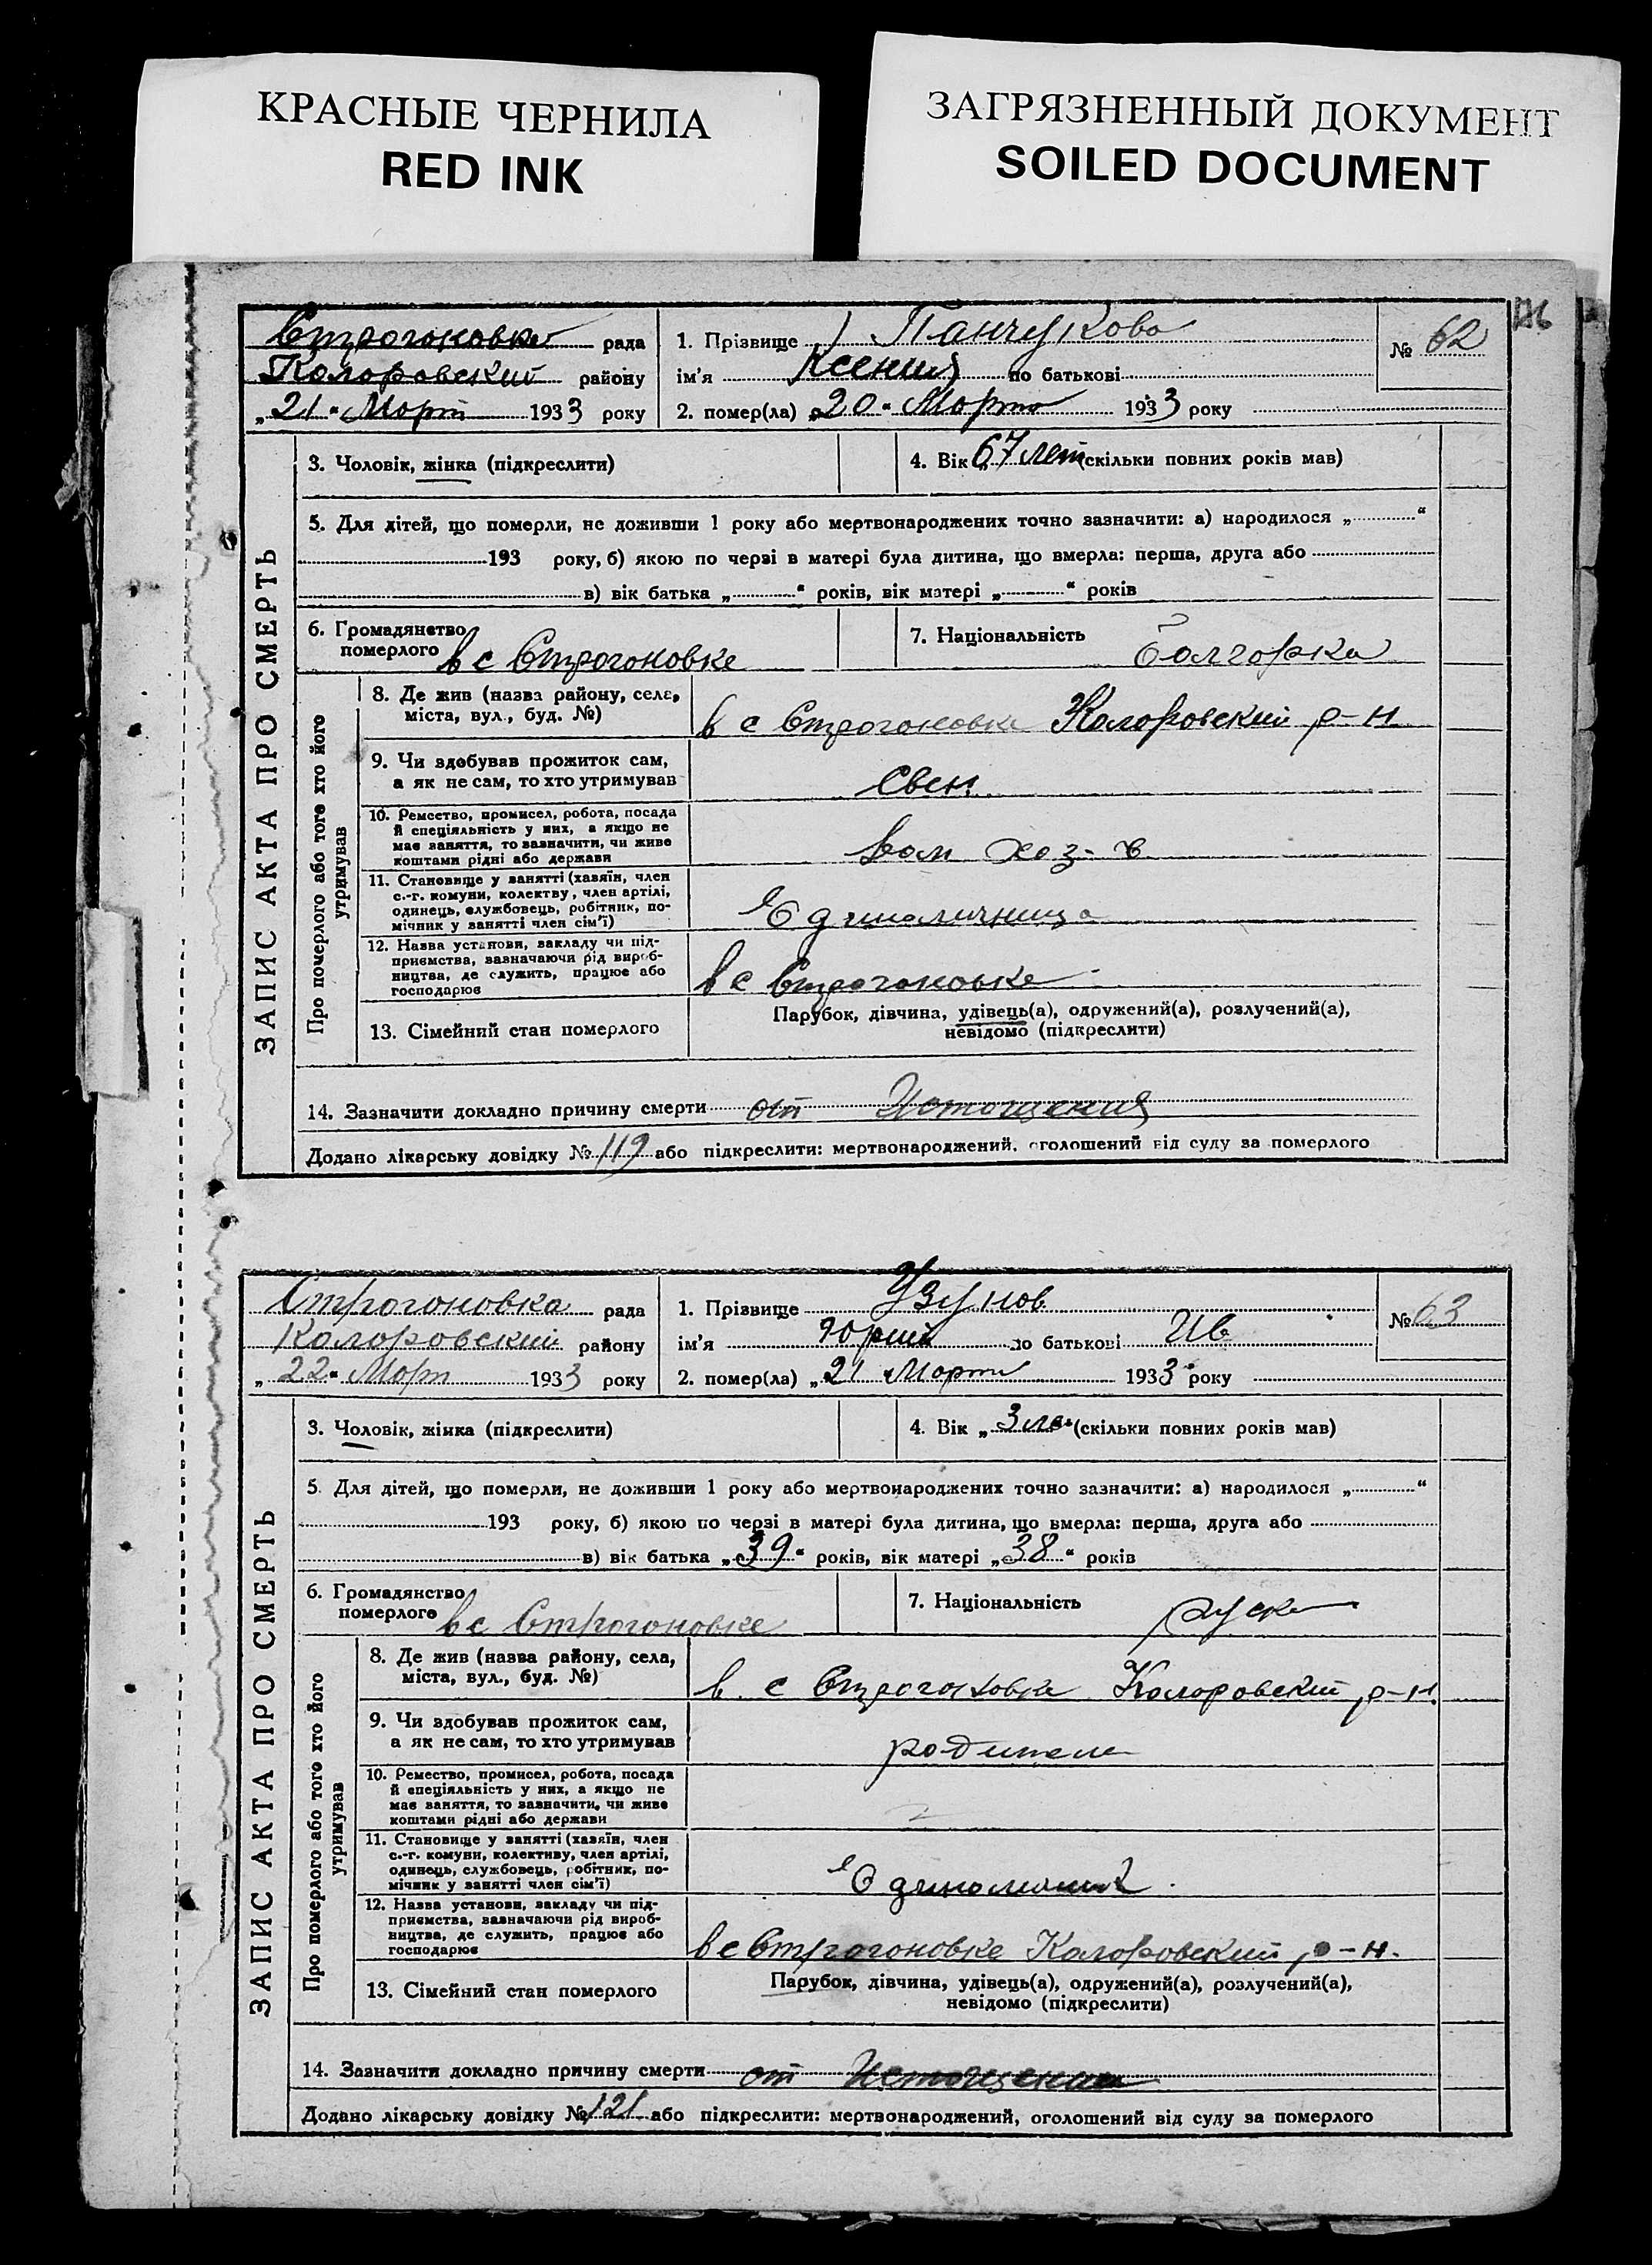 КРАСНЫЕ ЧЕРНИЛА
RED INK
ЗАГРЯЗНЕННЫЙ ДОКУМЕНТ
SOILED DOCUMENT
Строгоновка рада
Коларовский району
„21“ Март 1933 року
1. Прізвище Панчукова
ім'я Ксения по батькові
2. помер(ла) „20“ Марта 1933 року
№ 62
ЗАПИС АКТА ПРО СМЕРТЬ
3. Чоловік, жінка (підкреслити)
4. Вік „67 лет (скільки повних років мав)
5. Для дітей, що померли, не доживши 1 року або мертвонароджених точно зазначити: а) народилося „ “
193 року, б) якою по черзі в матері була дитина, що вмерла: перша, друга або
в) вік батька „ “ років, вік матері „ “ років
6. Громадянство
померлого в с Строгоновке
7. Національність болгарка
Про померлого або того хто його
утримував
8. Де жив (назва району, села,
міста, вул., буд. №)
в с Строгоновка Коларовский р-н
9. Чи здобував прожиток сам,
а як не сам, то хто утримував
10. Ремество, промисел, робота, посада
й спеціяльність у них, а якщо не
має заняття, то зазначити, чи живе
коштами рідні або держави
хоз-в
11. Становище у занятті (хазяїн, член
с.-г. комуни, колективу, член артілі,
одинець, службовець, робітник, по-
мічник у занятті член сім'ї)
Единоличница
12. Назва установи, закладу чи під-
приємства, зазначаючи рід вироб-
ництва, де служить, працює або
господарює
в с Строгоновке
13. Сімейний стан померлого
Парубок, дівчина, удівець(а), одружений(а), розлучений(а),
невідомо (підкреслити)
14. Зазначити докладно причину смерти от Истощения
Додано лікарську довідку № 119 або підкреслити: мертвонароджений, оголошений від суду за померлого
Строгоновка рада
Коларовский району
„22“ Март 1933 року
1. Прізвище Узунов
ім'я Юрий по батькові Ив
2. помер(ла) „21 Марта 1933 року
№ 63
ЗАПИС АКТА ПРО СМЕРТЬ
3. Чоловік, жінка (підкреслити)
4. Вік „3 “ (скільки повних років мав)
5. Для дітей, що померли, не доживши 1 року або мертвонароджених точно зазначити: а) народилося „ “
193 року, б) якою по черзі в матері була дитина, що вмерла: перша, друга або
в) вік батька „39“ років, вік матері „38“ років
6. Громадянство
померлого в с Строгоновке
7. Національність
Про померлого або того хто його
утримував
8. Де жив (назва району, села,
міста, вул., буд. №)
в с Строгоновка Коларовский р-н
9. Чи здобував прожиток сам,
а як не сам, то хто утримував
родители
10. Ремество, промисел, робота, посада
й спеціяльність у них, а якщо не
має заняття, то зазначити, чи живе
коштами рідні або держави
11. Становище у занятті (хазяїн, член
с.-г. комуни, колективу, член артілі,
одинець, службовець, робітник, по-
мічник у занятті член сім'ї)
Единоличник
12. Назва установи, закладу чи під-
приємства, зазначаючи рід вироб-
ництва, де служить, працює або
господарює
в с Строгоновке Коларовский р-н.
13. Сімейний стан померлого
Парубок, дівчина, удівець(а), одружений(а), розлучений(а),
невідомо (підкреслити)
14. Зазначити докладно причину смерти от Истощения
Додано лікарську довідку № 121 або підкреслити: мертвонароджений, оголошений від суду за померлого